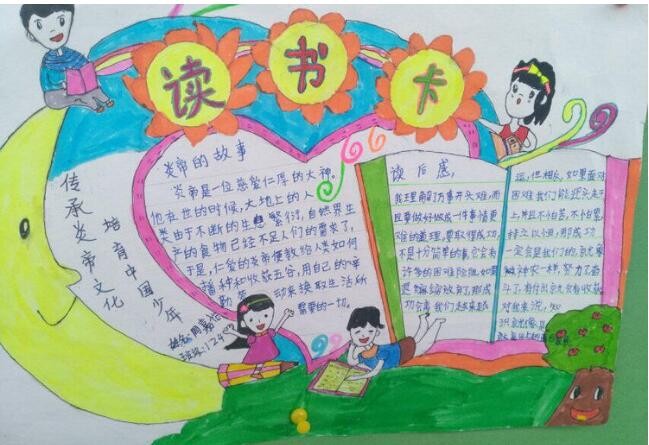 读书卡
传承炎帝文化
培育中国少年
炎帝的故事
炎帝是一位慈爱仁厚的大神。
他在世的时候，大地上的人
类由于不断的生息繁衍，自然界生
产的食物已经不足人们的需求了，
于是，仁爱的炎帝便教给人类如何
播种和收获五谷，用自己的辛
勤劳动来换取生活所
需要的一切。
姓名：周嘉
班级：124
读后感，
我理解了万事开头难，而
且要做好做成一件事情更
难的道理，要取得成功，
不是十分简单的事，它会有
许多的困难险阻，如果
退缩放弃了，那成
功会离我们越来越
远，但相反，如果面对
困难我们能迎头走
上，并且不怕苦，不怕累，
持之以恒，那成功
一定会是我们的，就
神农一样，努力了
斗了，有付出就会有收获，
对我来说，知
识就像